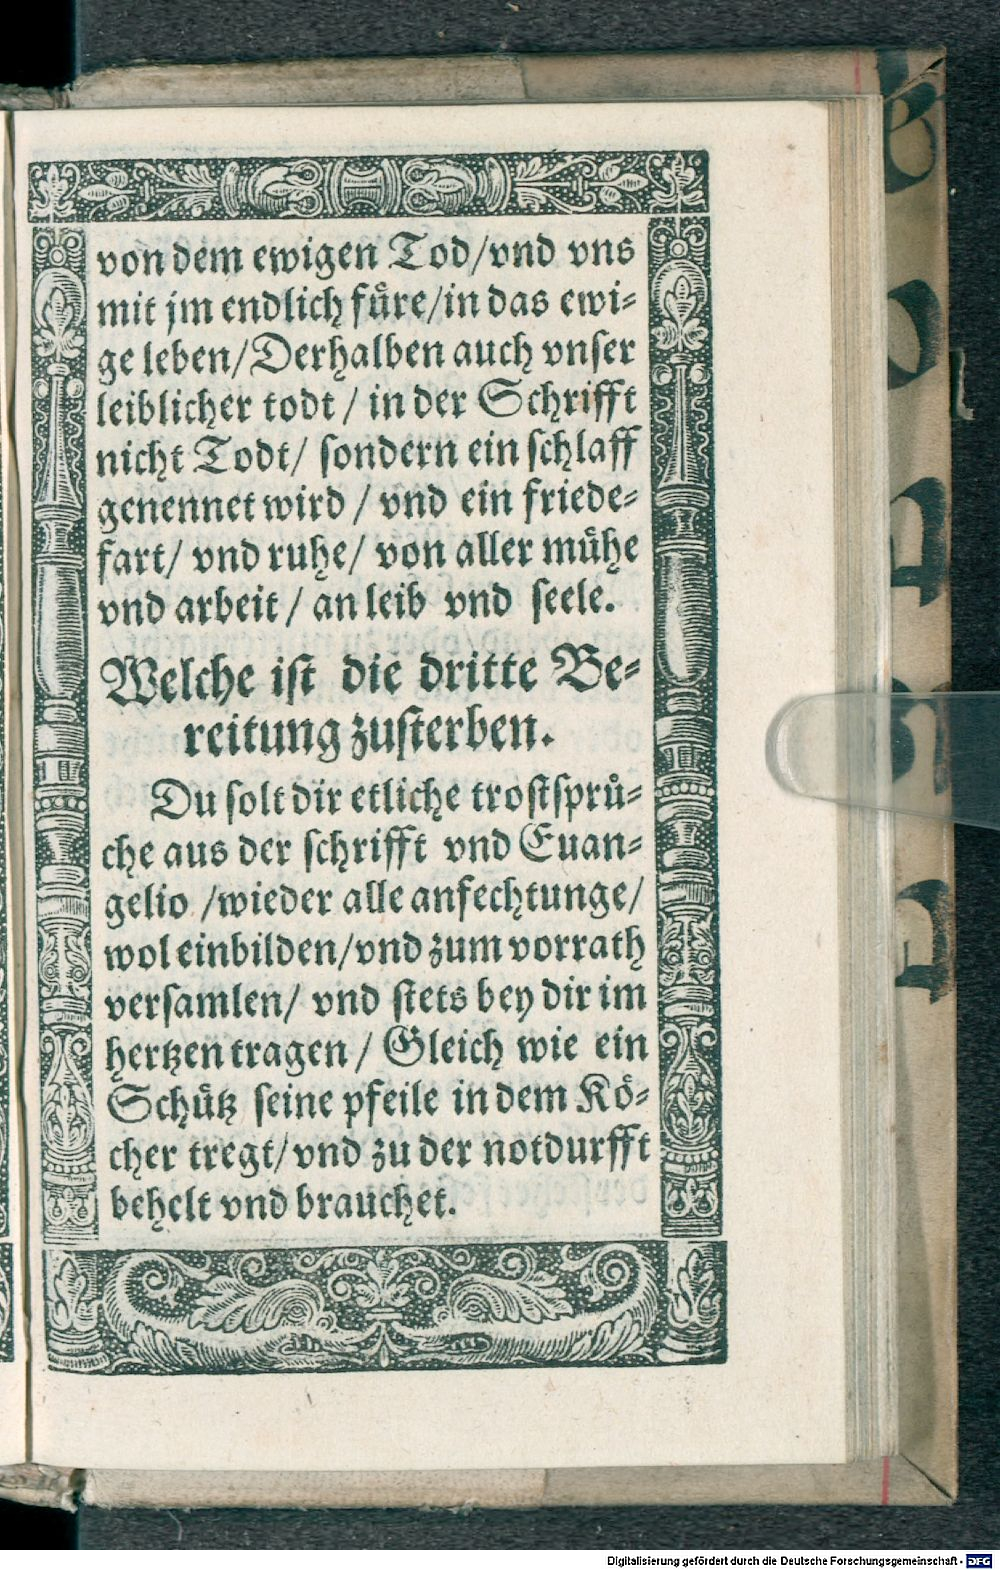 von dem ewigen Tod/vnd vns
mit jm endlich fuͤre/in das ewi⸗
ge leben/Derhalben auch vnser
leiblicher todt / in der Schrifft
nicht Todt/ sondern ein schlaff
genennet wird / vnd ein friede⸗
fart/ vnd ruhe/ von aller muͤhe
vnd arbeit / an leib vnd seele.
Welche ist die dritte Be⸗
reitung zusterben.
Du solt dir etliche trostspruͤ⸗
che aus der schrifft vnd Euan⸗
gelio /wieder alle anfechtunge/
wol einbilden/vnd zum vorrath
versamlen/ vnd stets bey dir im
hertzen tragen / Gleich wie ein
Schuͤtz seine pfeile in dem Koͤ⸗
cher tregt/vnd zu der notdurfft
behelt vnd brauchet.
Digitalisierung gefördert durch die Deutsche Forschungsgemeinschaft - DFG